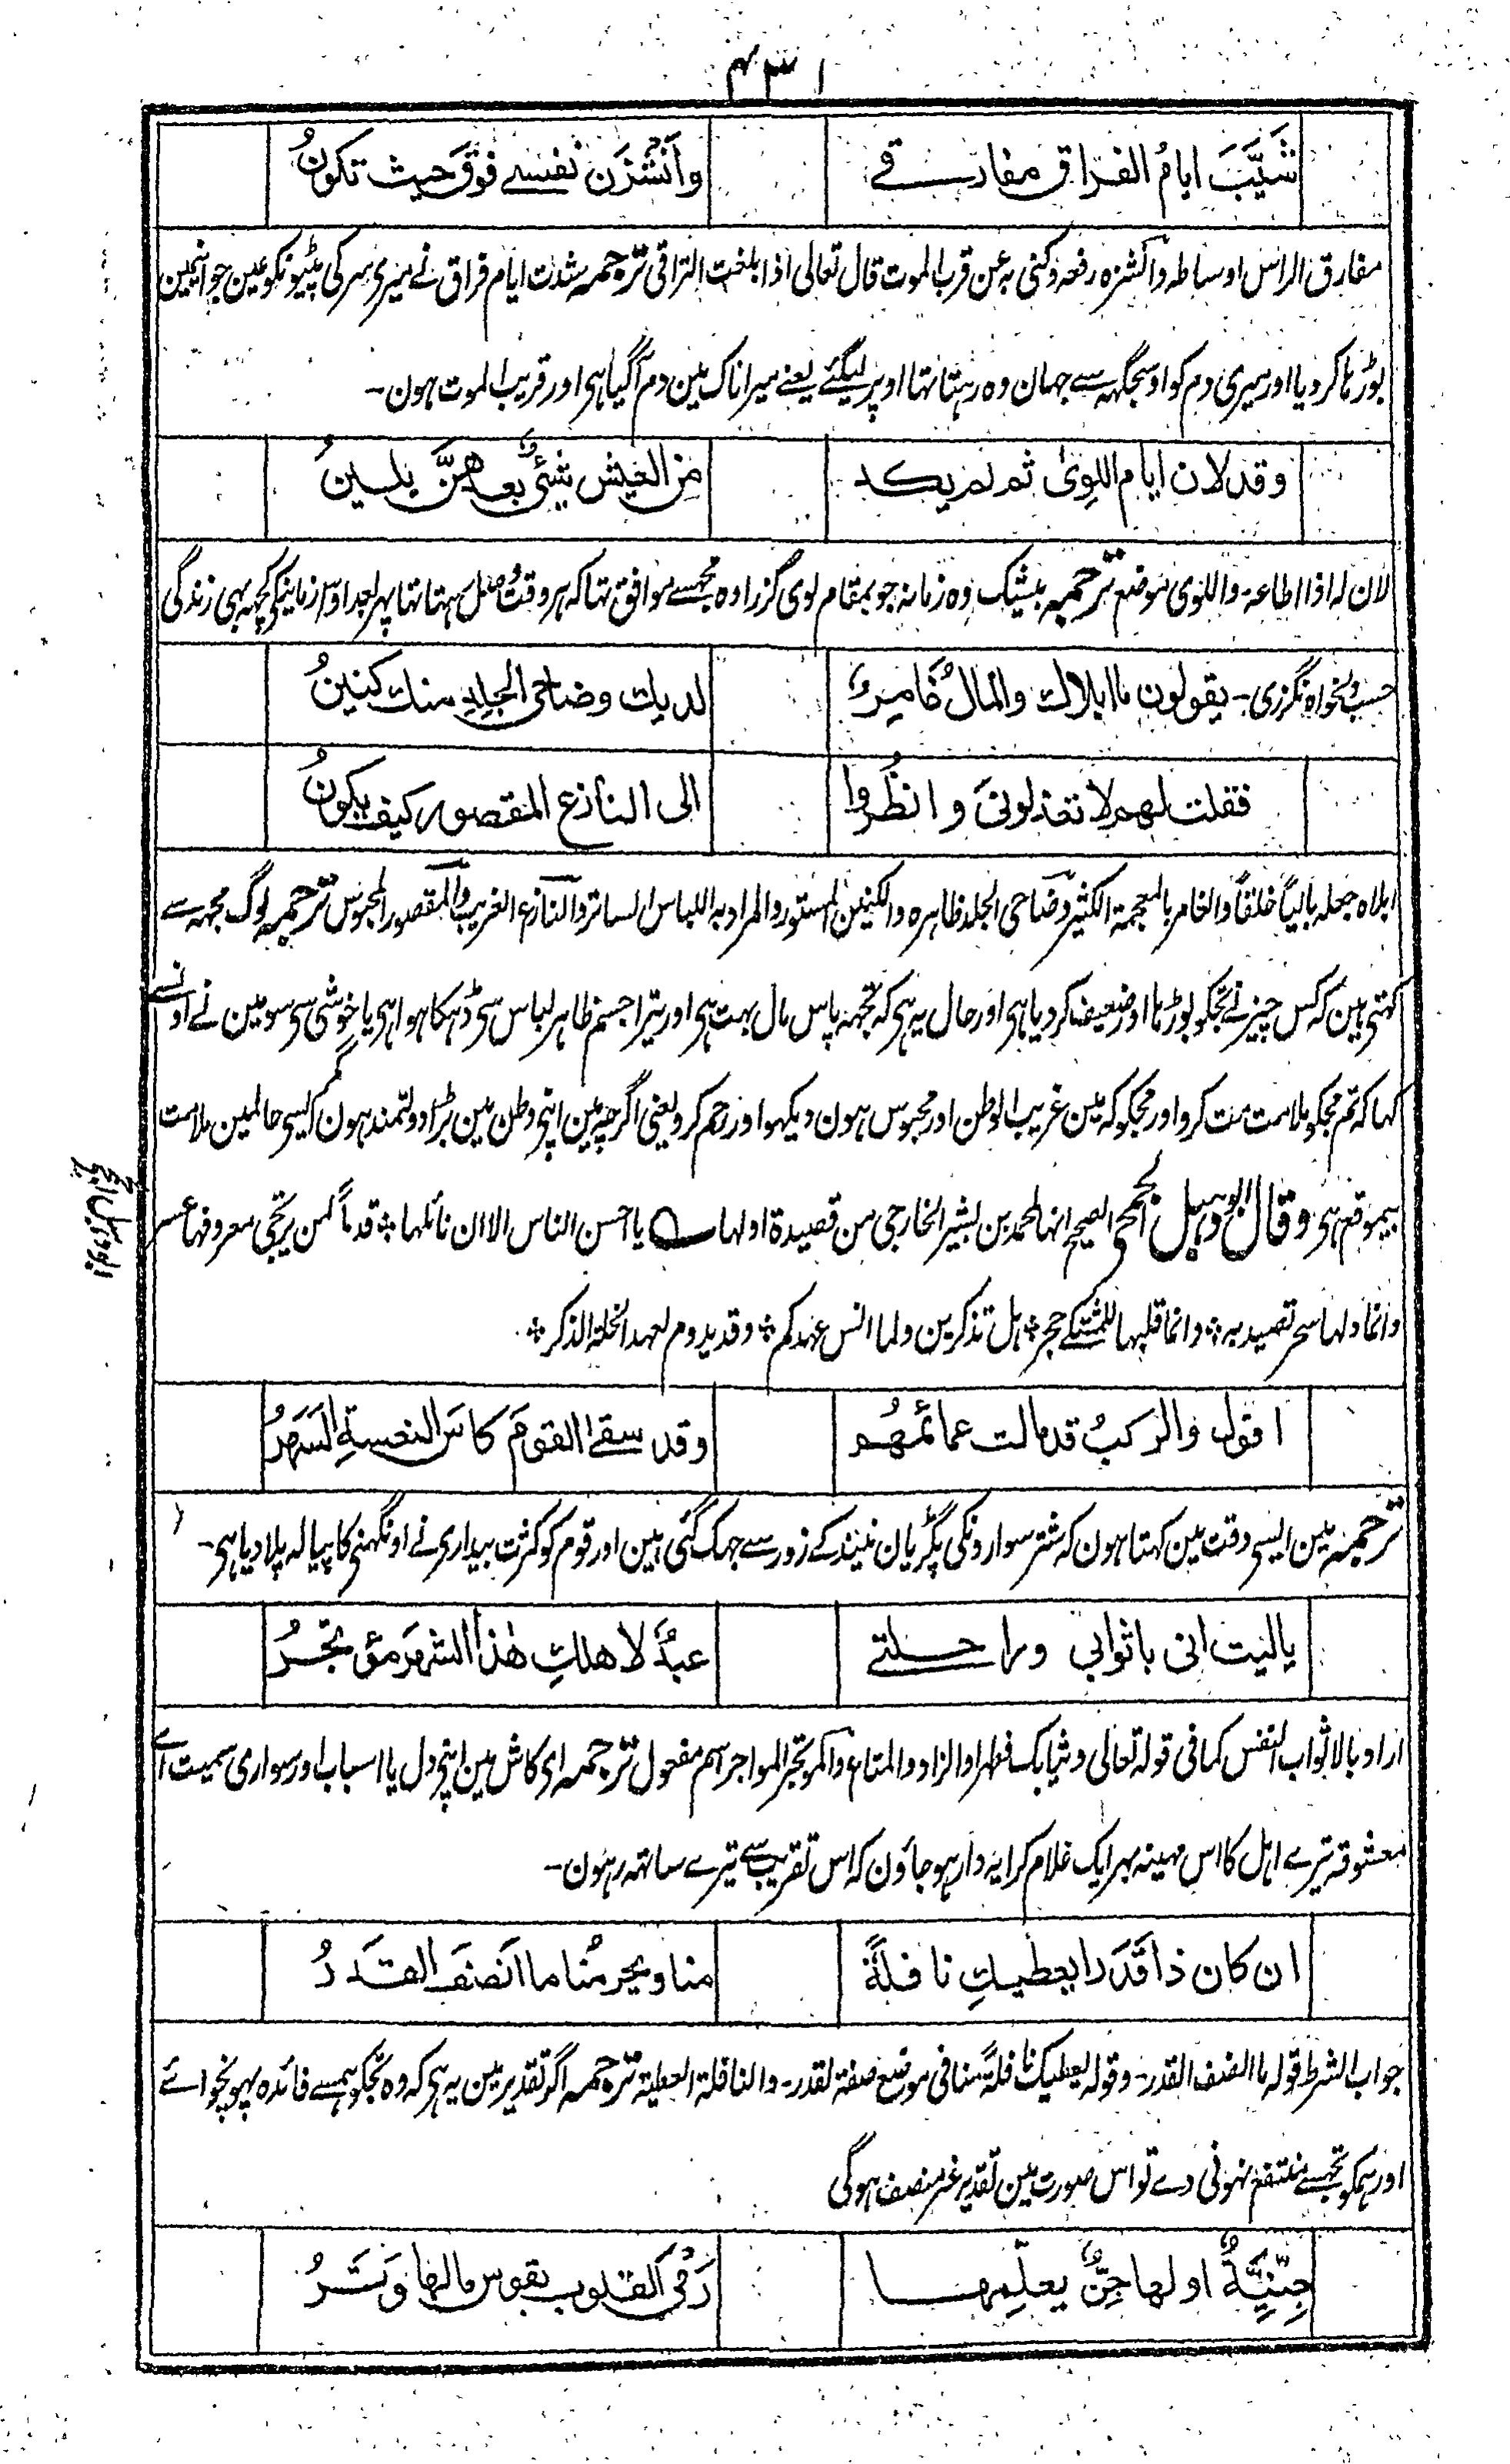 ۴۳۱
شَيَّبَ ايامُ الفراق مفارقے وانشزن نفسے فوق حيث تكونُ
مفارق الراس اوساطہ وانشزہ رفعہ وكنی بہ عن قرب الموت قال تعالی اذا بلغت التراقی ترجمہ شدت ایام فراق نے میری سر کی پٹیونکو عین جوانیمین
بوڑہا کر دیا اور میری دم کو اوسجگہہ سے جہان وہ رہتا تہا اوپر لیگئے یعنے میرا ناک مین دم آگیا ہی اور قریب الموت ہون۔
وقد لان ايام اللوى ثم لم يكد من العيش شئٌ بعد هنَّ يلينُ
لان لہ اذا اطاعہ۔ واللوی موضع ترجمہ بیشک وہ زمانہ جو بمقام لوی گزرا وہ مجہسے موافق تہا کہ ہر وقت وصل رہتا تہا پہر بعد اوس زمانیکی کچہہ بہی زندگی
حسب دلخواہ نگزری۔ يقولون ما ابلاك والمالُ غامرٌ لديك وضاحى الجلد منك كنينُ
فقلت لهم لا تعذلونى وانظُروا الى النازع المقصور كيف يكونُ
ابلاہ جعلہ بالیًا خلقًا والغامر بالمعجمۃ الکثیر وضاحی الجلد ظاہرہ والکنین المستور والمراد بہ اللباس الساتر والنازع الغریب والمقصور المحبوس ترجمہ لوگ مجہہ سے
کہتی ہین کہ کس چیز نے تجکو بوڑہا اور ضعیف کر دیا ہی اور حال یہ ہی کہ تجہہ پاس مال بہت ہی اور تیرا جسم ظاہر لباس سی ڈہکا ہوا ہی یا خوشی سی سو مین نے اونسے
کہا کہ تم مجکو ملامت مت کرو اور مجکو کہ مین غریب الوطن اور محبوس ہون دیکہو اور رحم کرو یعنی اگرچہ مین اپنی وطن مین بڑا دولتمند ہون مگر ایسی حالمین ملامت
بیموقع ہی وقال ابو دہبل الجمحی الصحیح انہا لمحمد بن بشیر الخارجی من قصیدۃ اولہا یا احسن الناس الا ان نائلہا ٭ قدماً لمن یرتجی معروفہا عسر
وانما دلہا سحر تصید بہ ٭ وانما قلبہا للمشتکے حجر ٭ ہل تذکرین ولما انس عہدکم ٭ وقد یدوم لعہد الخلۃ الذکر ٭
ابو دہبل الجمحی
اقول والركبُ قد مالت عمائمُهُم وقد سقى القومَ كاسَ النعسةِ السهرُ
ترجمہ مین ایسی وقت مین کہتا ہون کہ شتر سوارونکی پگڑیان نیند کے زور سے جہک گئی ہین اور قوم کو کثرت بیداری نے اونگہنی کا پیالہ پلا دیا ہی۔
ياليت انى باثوابي وراحلتے عبدٌ لاهلكِ هذا الشهرَ مؤتجرُ
اراد بالاثواب النفس کما فی قولہ تعالی وثیابک فطہر او الزاد والمتاع والموتجر المواجر اسم مفعول ترجمہ ای کاش مین اپنی دل یا اسباب اور سواری سمیت اے
معشوقہ تیرے اہل کا اس مہینہ بہر ایک غلام کرایہ دار ہو جاؤن کہ اس تقریب سے تیرے ساتہہ رہون۔
ان كان ذا قَدَرا يعطيكِ نافلةً منا ويحرمُنا ما انصَفَ القَدَرُ
جواب الشرط قولہ ما انصف القدر۔ وقولہ یعطیک نافلۃً منا فی موضع صفۃ لقدر۔ والنافلۃ العطیۃ ترجمہ اگر تقدیر مین یہ ہی کہ وہ تجکو ہمسے فائدہ پہونچوائے
اور ہمکو تجہسے منتفع نہونی دے تو اس صورت مین تقدیر غیر منصف ہوگی
جِنِّيَّةٌ اولها جِنٌّ يعلِّمها رَمْىَ القلوب بقوس مالها وَتَرُ